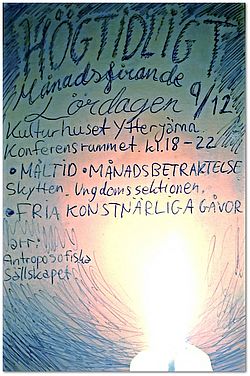 HÖGTIDLIGT
Månadsfirande
Lördagen 9/12
Kulturhuset Ytterjärna
Konferensrummet. kl. 18-22
• MÅLTID • MÅNADSBETRAKTELSE
Skytten. Ungdomssektionen.
• FRIA KONSTNÄRLIGA GÅVOR
arr:
Antroposofiska
Sällskapet